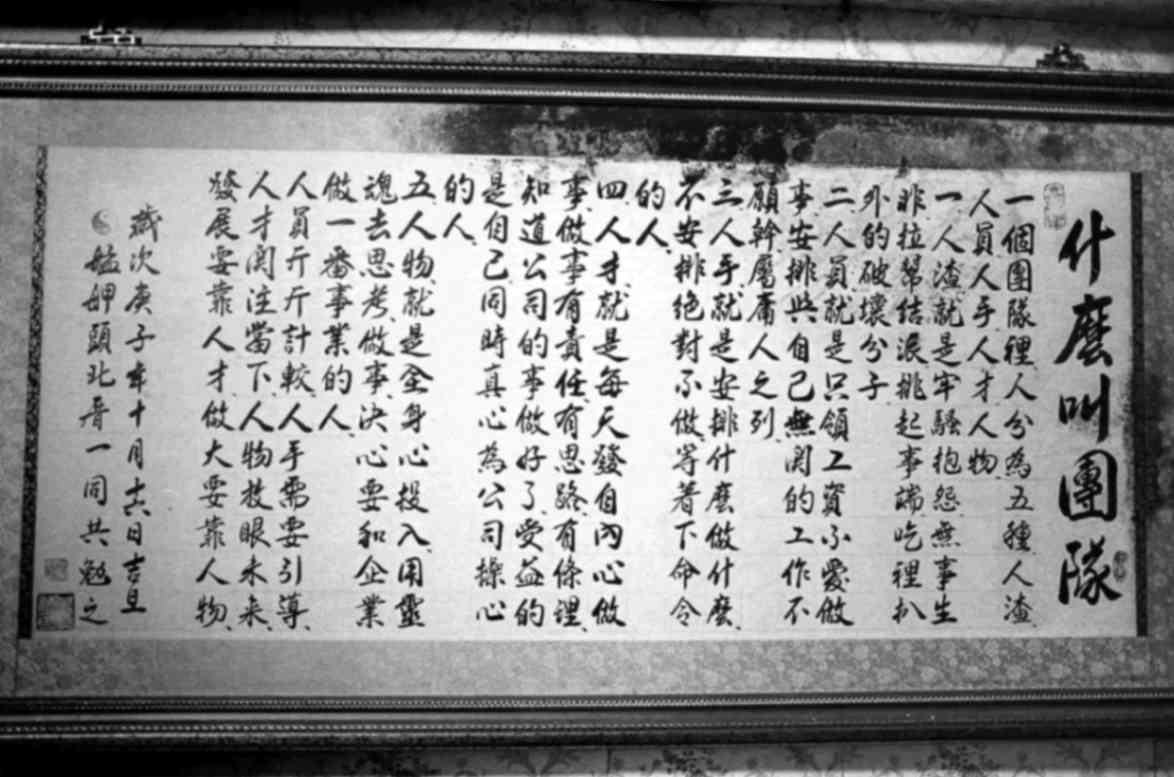 什麼叫團隊
一個團隊裡人分為五種人渣、
人員人手人才人物、
一、人渣就是牢騷抱怨無事生
非拉幫結派挑起事端吃裡扒
外的破壞分子
二、人員就是只領工資不愛做
事、安排與自己無関的工作不
願幹屬庸人之列、
三、人手就是安排什麼做什麼、
不安排絕對不做等着下命令
的人、
四、人才就是每天發自內心做
事、做事有責任有思路有條理、
知道公司的事做好了、受益的
是自己同時真心為公司操心
的人、
五、人物就是全身心投入、用靈
魂去思考、做事決心要和企業
做一番事業的人、
人員斤斤計較、人手需要引導、
人才関注當下、人物放眼未来、
發展要靠人才、做大要靠人物、
歲次庚子年十月十六日吉旦
艋舺頭北厝一同共勉之